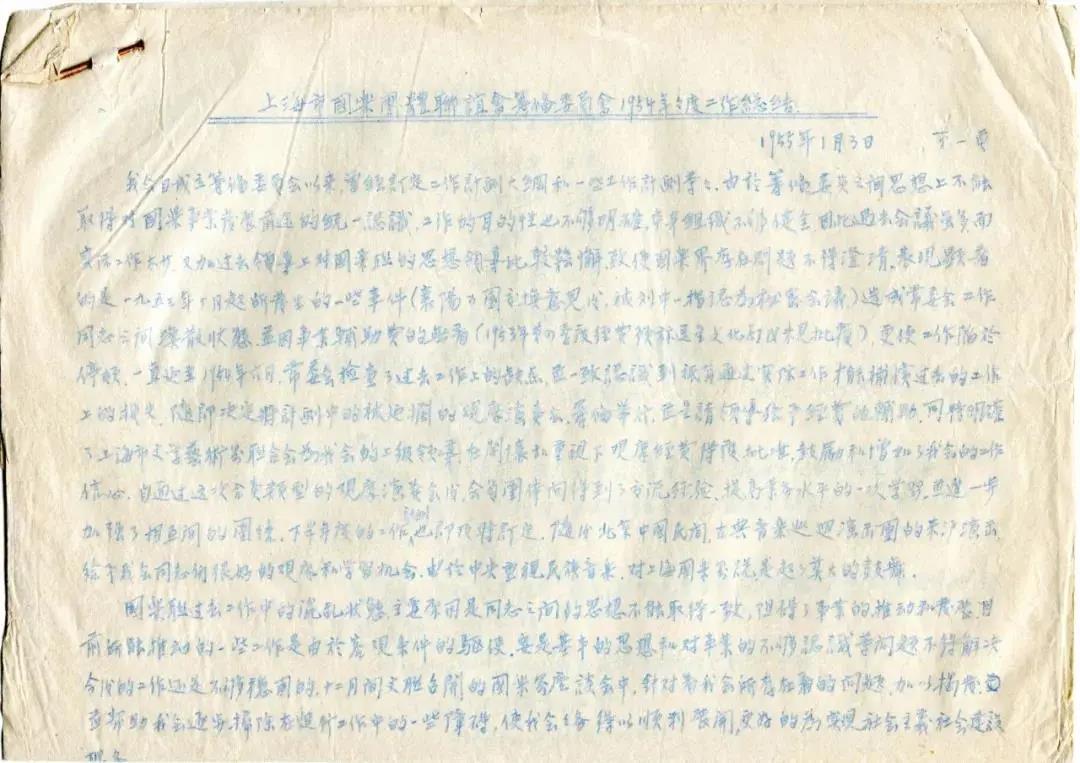 上海市國樂團體聯誼會籌備委員會1954年度工作總結
1955年1月3日 第一頁
我会自成立籌備委員会以来,曾經訂定工作計劃大綱和一些工作計劃等等,由於籌備委員之間思想上不能
取得对國樂事業發展前途的統一認識,工作的目的性也不够明確,本身組織不够健全,因此过去会議虽多而
实际工作太少,又加过去領導上对國樂联的思想領導比較鬆懈,致使國樂界存在問題不得澄清,表現顯著
的是一九五三年 月起所發生的一些事件(襄陽 國 換意見 ,被列 一 認為秘密会議)造成常委会工作
同志之間渙散狀態,並因事業輔助費的 (1953年 季度經費預算送呈文化局 未見批覆),更使工作陷於
停頓,一直延至1954年六月,常委会檢查了过去工作上的缺点,並一致認識到祇有通过实际工作才能補償过去的工作
上的損失,隨即决定將計劃中的被延擱的观摩演奏会,籌備举行,並呈請領導給予經費的輔助,同時明確
了上海市文学藝術界联合会為我会的上級領導,在関懷和重視下观摩經費得獲批准,鼓勵和增加了我会的工作
信心,自通过这次合奏類型的观摩演奏会后,会員團体间得到了交流經驗,提高業务水平的一次学習,並進一步
加强了相互间的團結,下半年度的工作計劃也即及時訂定,隨后北京中國民间,古典音樂巡迴演出團的来沪演出
給予我会同志们很好的观摩和学習机会,由於中央重視民族音樂,对上海國樂界说是起了莫大的鼓舞。
國樂联过去工作中的混乱狀態,主要原因是同志之间的思想不能取得一致,阻碍了事業的推动和發展,目
前所能推动的一些工作是由於客观条件的驅使,要是基本的思想和对事業的不够認識等问題不得解决
今后的工作还是不够穩固的,十二月间文联召開的國樂界座談会中,針对着我会所存在着的问題,加以揭發
並帮助我会逐步掃除在進行工作中的一些障碍,使我会会务得以順利展開,更好的為实現社会主义社会建設
服务